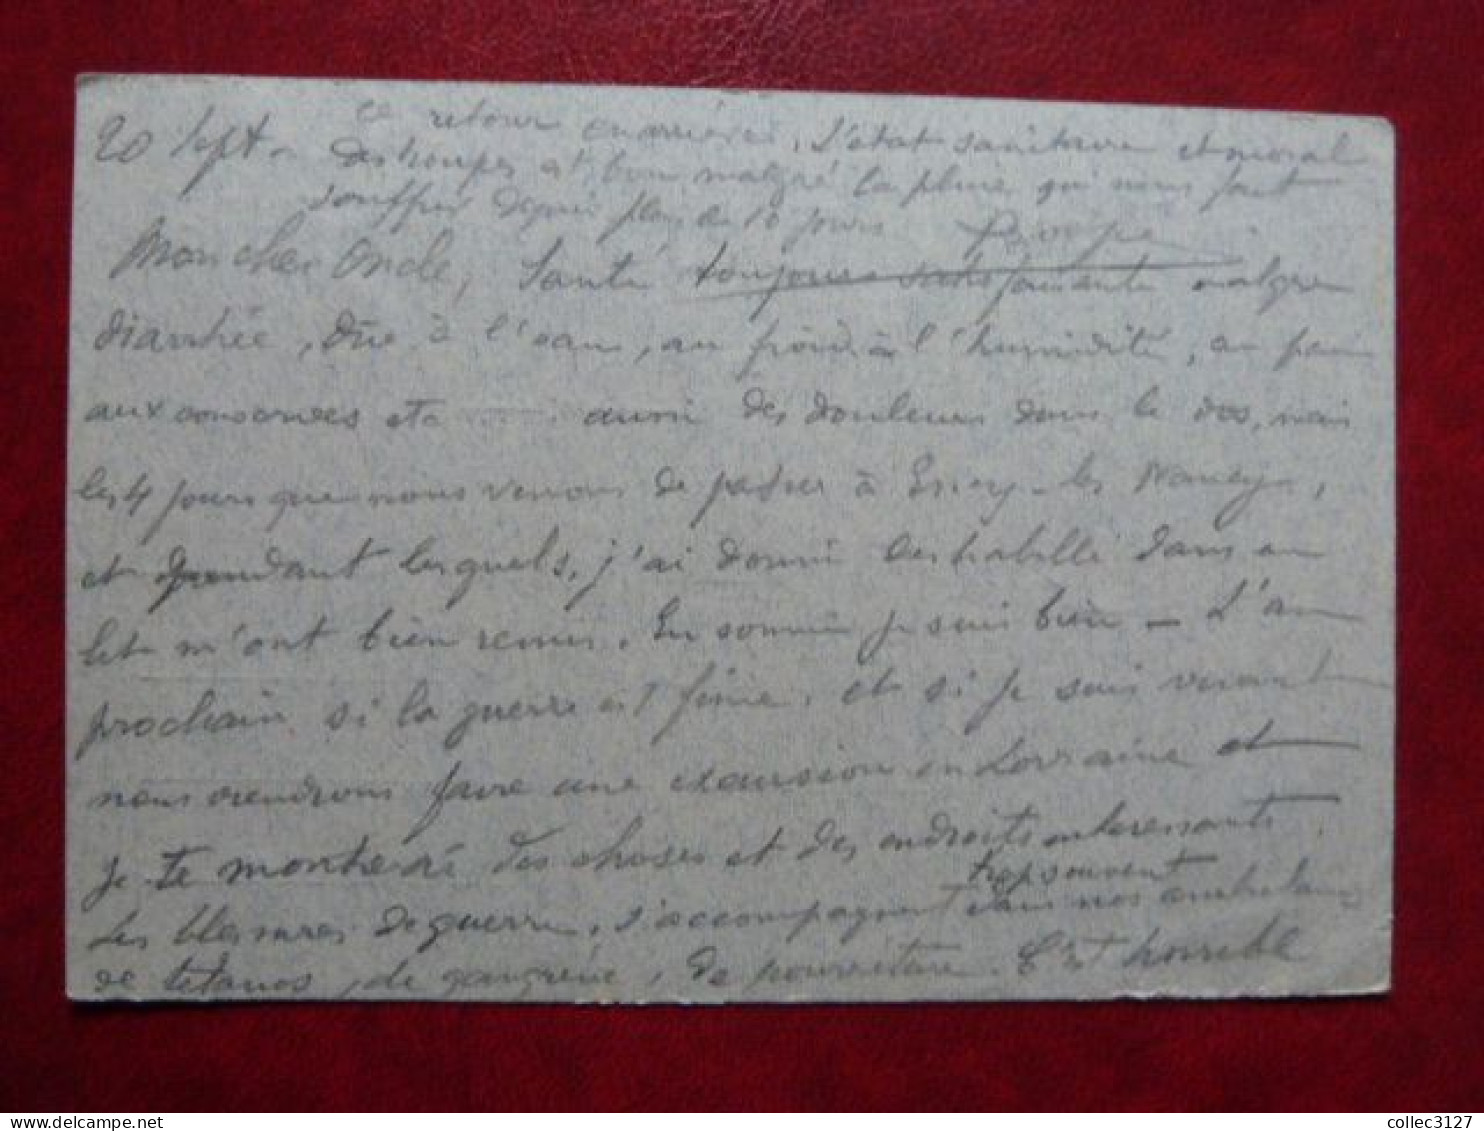 20 Sept. ce retour en arrière, l'état sanitaire et moral
des troupes est bon malgré la pluie qui nous fait
souffrir depuis plus de 10 jours
Mon cher Oncle, Santé toujours satisfaisante malgré
diarrhée, due à l'eau, au froid à l'humidité, au pain
aux conserves etc ..... aussi des douleurs dans le dos, mais
les 4 jours que nous venons de passer à Essey-les Nancy,
et pendant lesquels, j'ai dormi deshabillé dans un
lit m'ont bien remis. En somme je suis bien - L'an
prochain si la guerre est finie, et si je suis vivant
nous viendrons faire une excursion en Lorraine et
je te montrerai des choses et des endroits interessants.
trop souvent
Les blessures de guerre, s'accompagnent dans nos ambulances
de tetanos, de gangrène, de pourriture. C'est horrible
collec3127